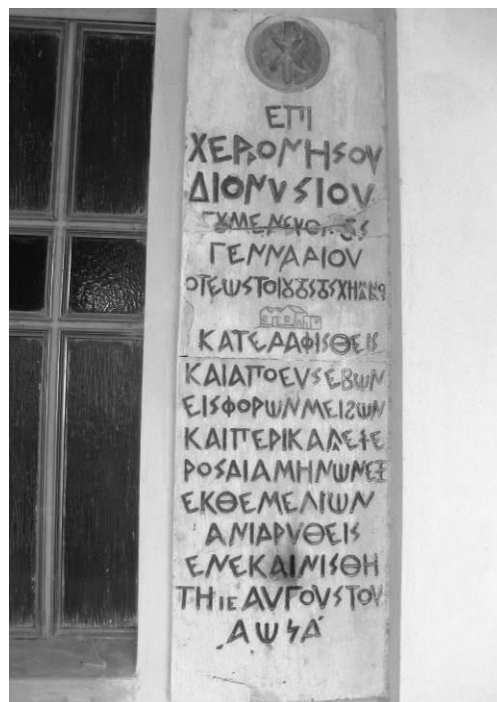 ΕΠΙ
ΧΕΡΡΟΝΗΣΟΥ
ΔΙΟΝΥΣΙΟΥ
ΓΕΝΝΑΔΙΟΥ
ΚΑΤΕΔΑΦΙΣΘΕΙΣ
ΚΑΙ ΑΠΟ ΕΥΣΕΒΩΝ
ΕΙΣΦΟΡΩΝ ΜΕΙΖΩΝ
ΚΑΙ ΠΕΡΙΚΑΛΕΣΤΕ
ΡΟΣ ΔΙΑ ΜΗΝΩΝ ΕΞ
ΕΚ ΘΕΜΕΛΙΩΝ
ΑΝΙΔΡΥΘΕΙΣ
ΕΝΕΚΑΙΝΙΣΘΗ
ΤΗ ΙΕ ΑΥΓΟΥΣΤΟΥ
͵ΑΩϞΑ